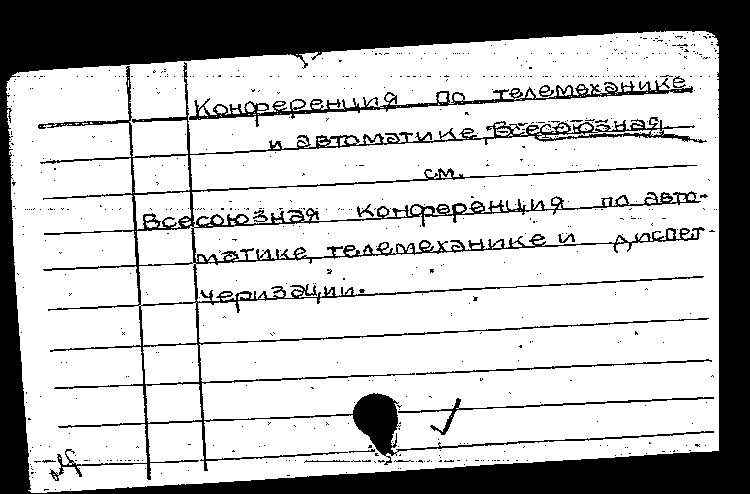 Конференция по телемеханике
и автоматике, Всесоюзная
см.
Всесоюзная конференция по авто-
матике, телемеханике и диспет-
черизации.